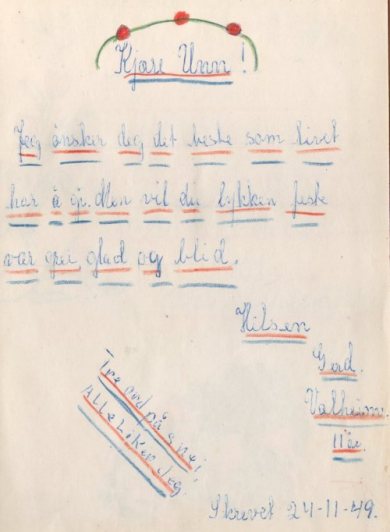 Kjære Unn!
Jeg ønsker deg det beste som livet
har å gi. Men vil du lykken feste
vær grei, glad og blid.
Hilsen
Gerd.
Valheim.
11 år.
Tre ord på s p ei,
Alle Liker Jeg.
Skrevet 24-11-49.